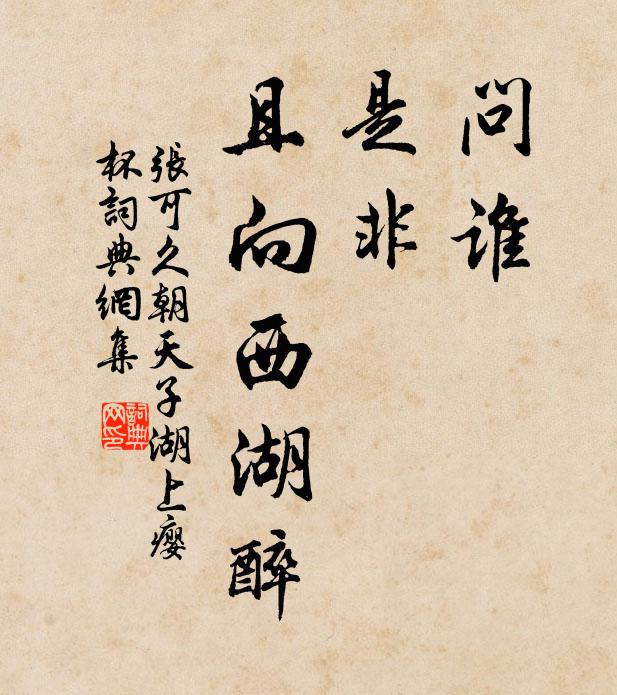 問誰
是非
且向西湖醉
張可久朝天子湖上瘿
杯詞典網集
詞典
网印